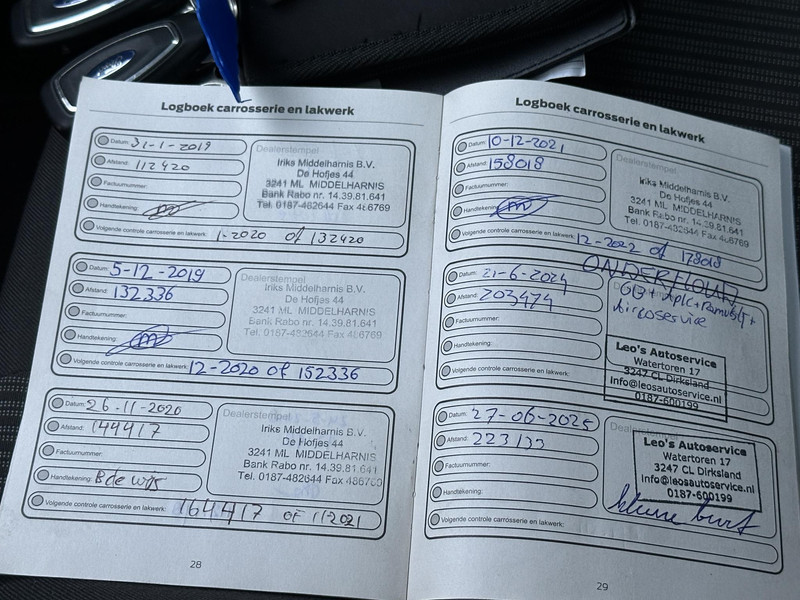 Logboek carrosserie en lakwerk
Datum: 31-1-2019
Afstand: 112420
Factuurnummer:
Handtekening:
Volgende controle carrosserie en lakwerk: 1-2020 of 132420
Dealerstempel
Iriks Middelharnis B.V.
De Hofjes 44
3241 ML MIDDELHARNIS
Bank Rabo nr. 14.39.81.641
Tel. 0187-482644 Fax 486769
Datum: 5-12-2019
Afstand: 132336
Factuurnummer:
Handtekening:
Volgende controle carrosserie en lakwerk: 12-2020 of 152336
Dealerstempel
Iriks Middelharnis B.V.
De Hofjes 44
3241 ML MIDDELHARNIS
Bank Rabo nr. 14.39.81.641
Tel. 0187-482644 Fax
Datum: 26-11-2020
Afstand: 144417
Factuurnummer:
Handtekening:
Volgende controle carrosserie en lakwerk: 164417 OF 11-2021
Dealerstempel
Iriks Middelharnis B.V.
De Hofjes 44
3241 ML MIDDELHARNIS
Bank Rabo nr. 14.39.81.641
Tel. 0187-482644 Fax
28
Logboek carrosserie en lakwerk
Datum: 10-12-2021
Afstand: 158018
Factuurnummer:
Handtekening:
Volgende controle carrosserie en lakwerk: 12-2022 of 178018
Dealerstempel
Iriks Middelharnis B.V.
De Hofjes 44
3241 ML MIDDELHARNIS
Bank Rabo nr. 14.39.81.641
Tel. 0187-482644 Fax 486769
Datum: 21-6-2024
Afstand: 203474
Factuurnummer:
Handtekening:
Volgende controle carrosserie en lakwerk:
Aircoservice
Leo's Autoservice
Watertoren 17
3247 CL Dirksland
info@leosautoservice.nl
0187-600199
Datum: 27-06-2025
Afstand: 223133
Factuurnummer:
Handtekening:
Volgende controle carrosserie en lakwerk:
Leo's Autoservice
Watertoren 17
3247 CL Dirksland
info@leosautoservice.nl
0187-600199
kleine burt
29